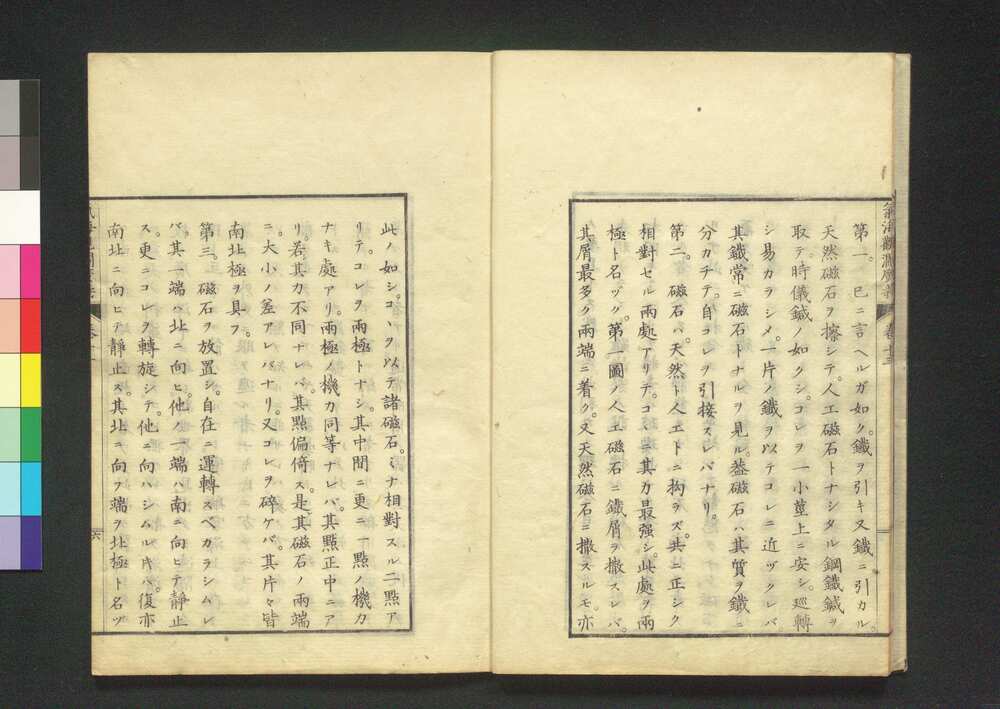 第一。已ニ言ヘルガ如ク。鐵ヲ引キ又鐵ニ引カル。
天然磁石ヲ擦シテ。人工磁石トナシタル鋼鐵鍼ヲ
取テ。時儀鍼ノ如クシ。コレヲ一小莖上ニ安シ。廵轉
シ易カラシメ。一片ノ鐵ヲ以テコレニ近ヅクレバ。
其鐵常ニ磁石トナルヲ見ル。蓋磁石ハ其質ヲ鐵ニ
分カチテ。自コレヲ引接スレバナリ。
第二。磁石ハ。天然ト人工トニ拘ラズ。共ニ正シク
相對セル兩處アリテ。コヽニ其力最强シ。此處ヲ兩
極ト名ヅク。第一圖ノ人工磁石ニ鐵屑ヲ撒スレバ。
其屑最多ク兩端ニ着ク。又天然磁石ニ撒スルモ。亦
此ノ如シ。コヽヲ以テ諸磁石。ミナ相對スル二點ア
リテ。コレヲ兩極トナシ。其中間ニ更ニ一點ノ機力
ナキ處アリ。兩極ノ機力同等ナレバ。其點正中ニア
リ。若其力不同ナレバ。其點偏倚ス。是其磁石ノ兩端
ニ。大小ノ差アレバナリ。又コレヲ碎ケバ。其片々皆
南北極ヲ具フ。
第三。磁石ヲ放置シ。自在ニ運轉スベカラシムレ
バ。其一端ハ北ニ向ヒ。他ノ一端ハ南ニ向ヒテ靜止
ス。更ニコレヲ轉旋シテ。他ニ向ハシムル片ハ。復亦
南北ニ向ヒテ靜止ス。其北ニ向フ端ヲ北極ト名ヅ
六